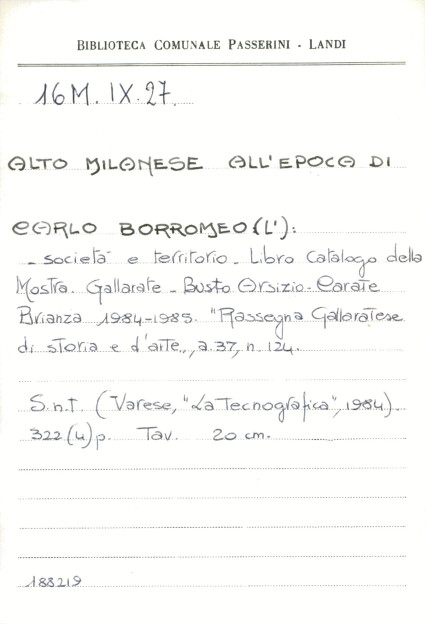 BIBLIOTECA COMUNALE PASSERINI - LANDI
16M. IX. 27.
ALTO MILANESE ALL'EPOCA DI
CARLO BORROMEO (L'):
- società e territorio - Libro Catalogo della
Mostra. Gallarate - Busto Arsizio - Carate
Brianza 1984-1985. "Rassegna Gallaratese
di storia e d'arte", a. 37, n. 124.
S.n.t. (Varese, "La Tecnografica", 1984)
322 (4) p. Tav. 20 cm.
188219